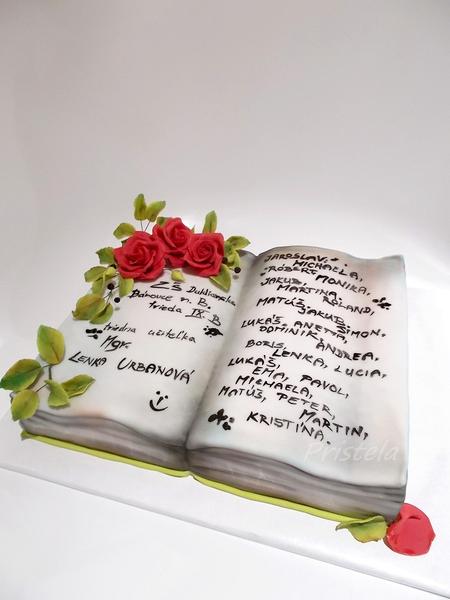 ZŠ Dubličanska
Bánovce n. B,
trieda IX. B
triedna učiteľka
Mgr.
LENKA URBANOVÁ
JAROSLAV,
MICHAELA,
RÓBERT, MONIKA,
JAKUB,
MARTINA, ROLAND,
MATÚŠ, JAKUB,
ŠIMON,
LUKÁŠ, ANETA,
DOMINIK, ANDREA,
BORIS,
LENKA, LUCIA,
LUKÁŠ,
EMA, PAVOL,
MICHAELA,
MATÚŠ, PETER,
MARTIN,
KRISTÍNA.
Pristela